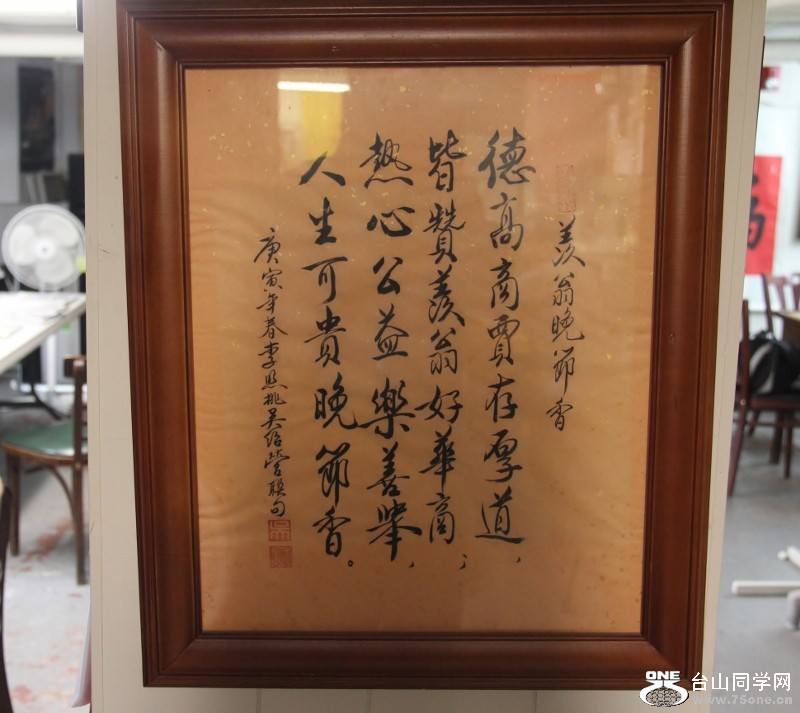 羡翁晚節香
德高商賈存厚道，
皆贊羡翁好華商；
熱心公益樂善舉，
人生可貴晚節香。
庚寅年春李照桃吴紹營聯句
ONE
台山同学网
www.75one.cn